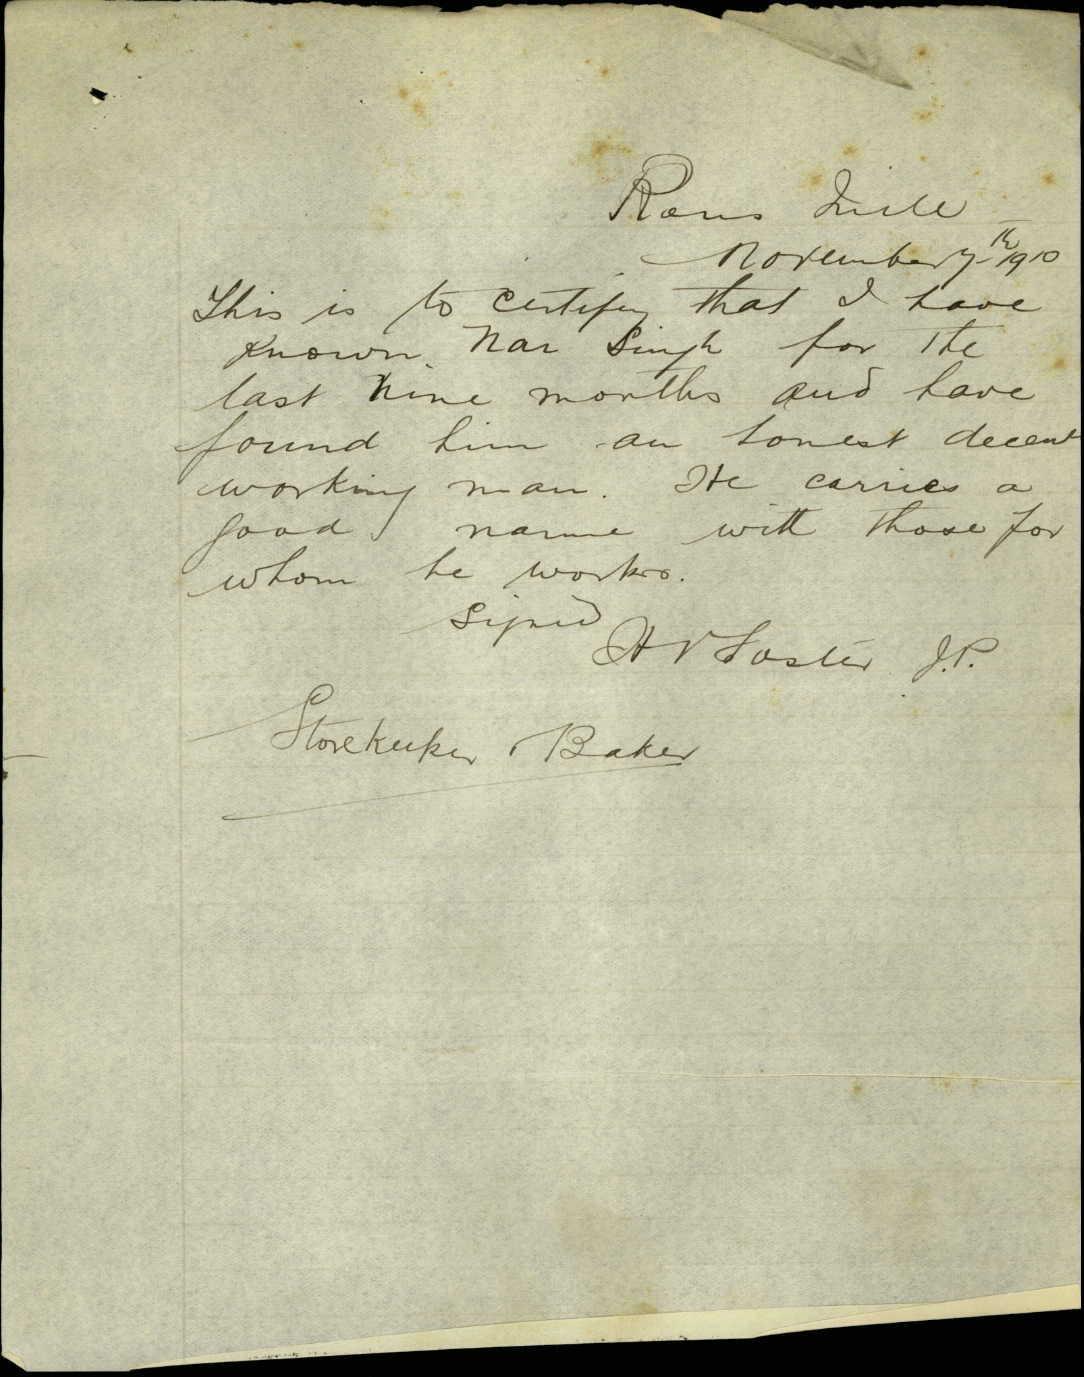 November 7th 1910
This is to certify that I have
known Nar Singh for the
last nine months and have
found him an honest decent
working man. He carries a
good name with those for
whom he works.
Signed
H V Foster J.P.
Storekeeper, Baker